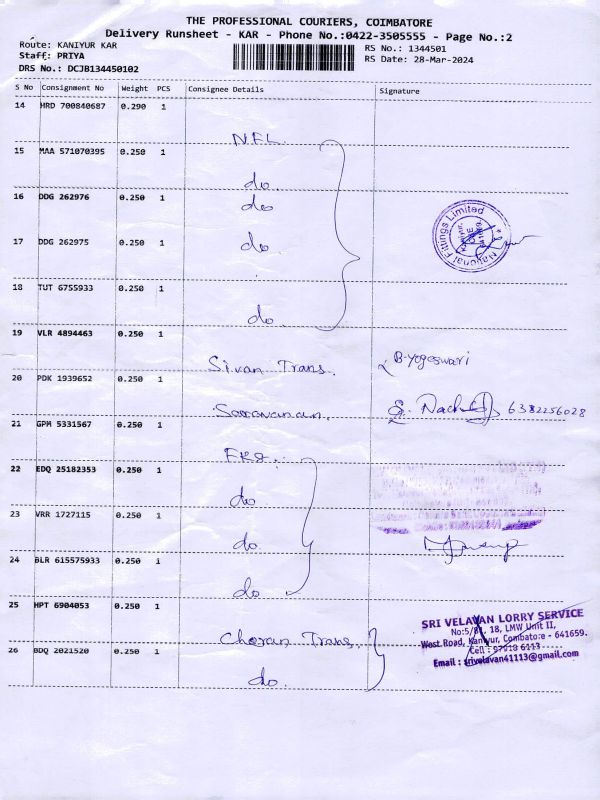 THE PROFESSIONAL COURIERS, COIMBATORE
Delivery Runsheet - KAR - Phone No.:0422-3505555 - Page No.:2
Route: KANIYUR KAR
RS No.: 1344501
Staff: PRIYA
RS Date: 28-Mar-2024
DRS No.: DCJB134450102
S No Consignment No Weight PCS Consignee Details Signature
14 HRD 700840687 0.290 1
N.F.L.
15 MAA 571070395 0.250 1
do.
16 DDG 262976 0.250 1
do
National Fittings Limited
17 DDG 262975 0.250 1
do.
18 TUT 6755933 0.250 1
do.
19 VLR 4894463 0.250 1
Sivan Trans. B-yogeswari
20 PDK 1939652 0.250 1
Saravanan. 6382256028
21 GPM 5331567 0.250 1
22 EDQ 25182353 0.250 1
do
23 VRR 1727115 0.250 1
do.
24 BLR 615575933 0.250 1
do.
25 HPT 6904053 0.250 1
SRI VELAVAN LORRY SERVICE
18, LMW Unit II,
Trans.
West Road, Kaniyur, Combatore - 641659.
26 BDQ 2021520 0.250 1
Cell : 97918 6113
Email : srivelavan41113@gmail.com
do.